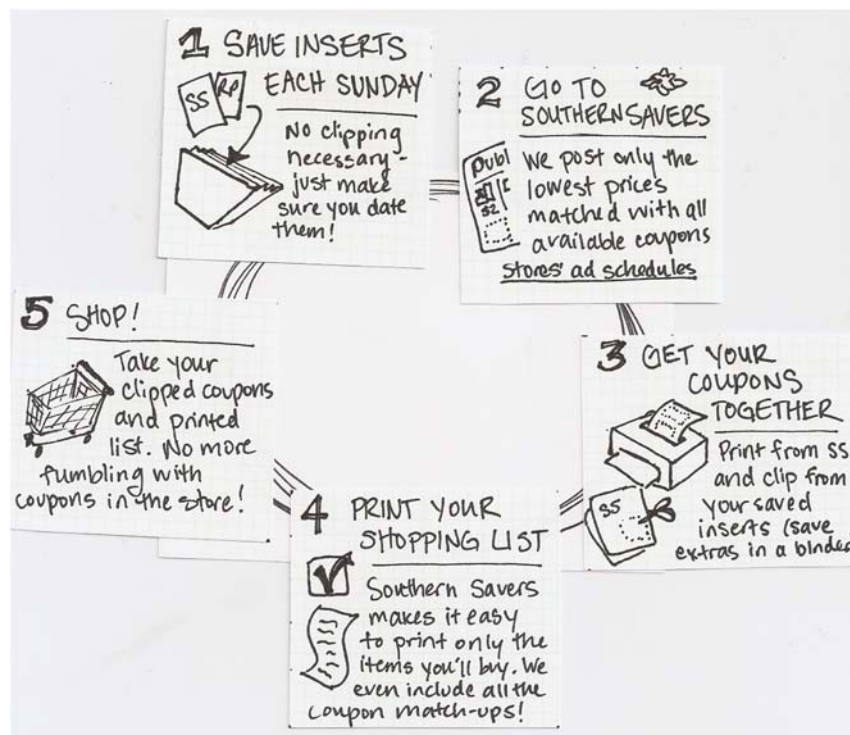 1 SAVE INSERTS
EACH SUNDAY
SS
RP
No clipping
necessary -
just make
sure you date
them!
2 GO TO
SOUTHERNSAVERS
publ
$2
We post only the
lowest prices
matched with all
available coupons
stores' ad schedules
3 GET YOUR
COUPONS
TOGETHER
SS
Print from SS
and clip from
your saved
inserts (save
extras in a binder
4 PRINT YOUR
SHOPPING LIST
Southern Savers
makes it easy
to print only the
items you'll buy. We
even include all the
coupon match-ups!
5 SHOP!
Take your
clipped coupons
and printed
list. No more
fumbling with
coupons in the store!